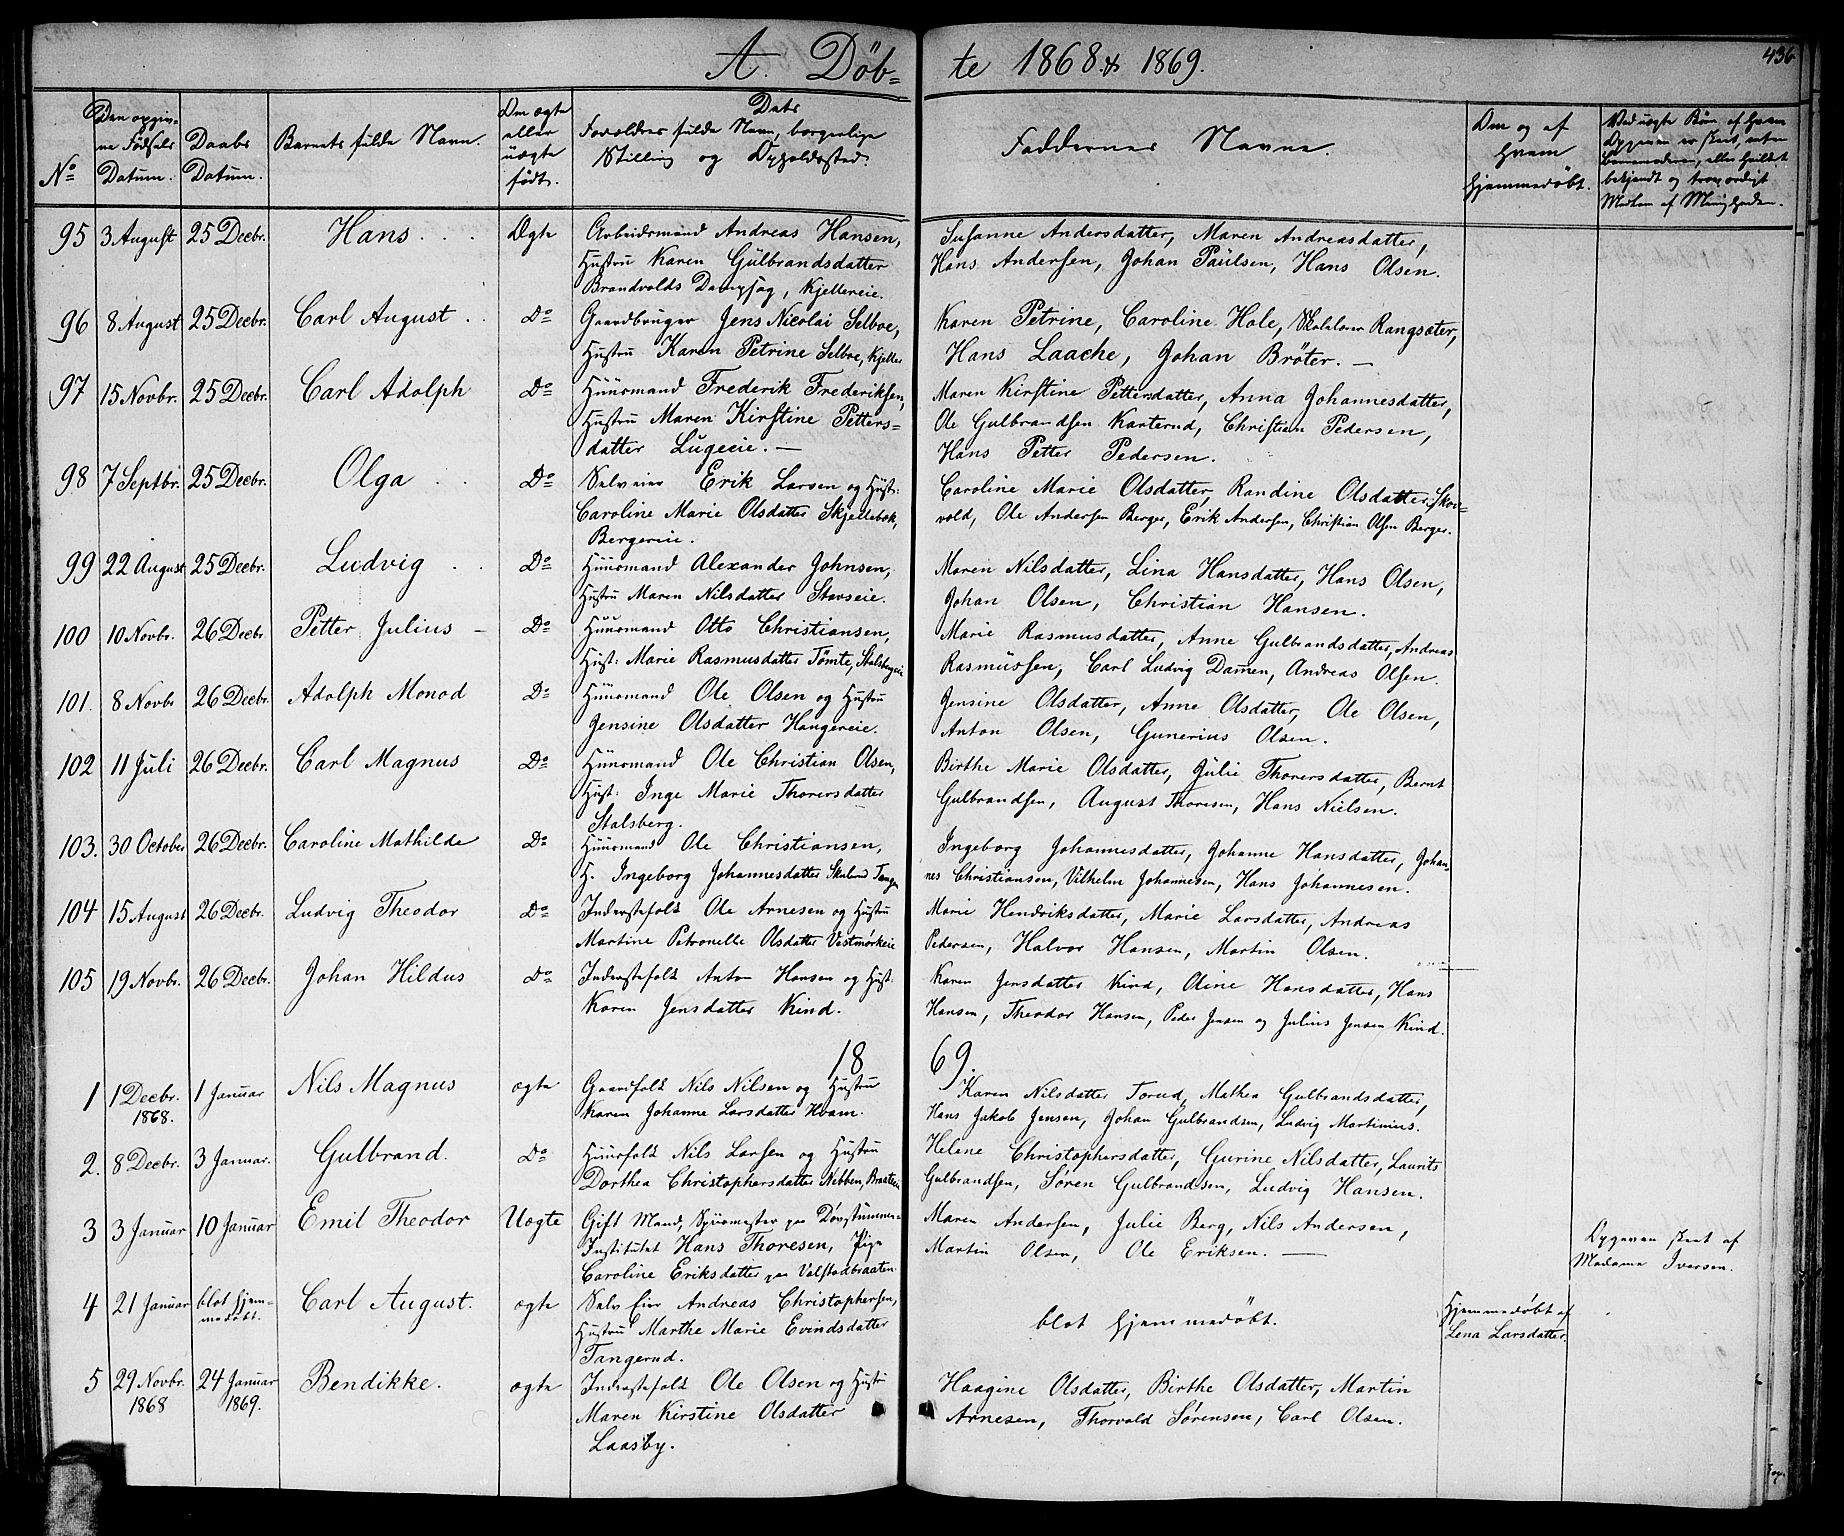 A. Döb=
te 1868 & 1869.
436
No
Den opgiv=
ne Fødsels
Datum.
Daabs
Datum.
Barnets fulde Navn.
Om ægte
eller
uægte
født.
Dets
Forældres fulde Navn, borgerlige
Stilling og Opholdssted.
Faddernes Navne.
Om og af
hvem
hjemmedøbt.
Ved uægte Børn af hvem
Opgaven er skeet, enten
Barnemoderen, eller hvilket
bekjendt og troværdigt
Medlem af Menigheden.
95 3 August 25 Decbr. Hans . . . Ægte Arbeidsmand Andreas Hansen, Susanne Andersdatter, Maren Andreasdatter,
Hustru Karen Gulbrandsdatter Hans Andersen, Johan Paulsen, Hans Olsen.
Brandvolds Dampsag, Kjellereie.
96 8 August 25 Decbr. Carl August . . Do Gaardbruger Jens Nicolai Selboe, Karen Petrine, Caroline Hole, Skolelærer Rangsæter,
Hustru Karen Petrine Selboe, Kjeller Hans Laache, Johan Brøter. —
97 15 Novbr. 25 Decbr. Carl Adolph Do Huusmand Frederik Frederiksen, Maren Kirstine Pettersdatter, Anna Johannesdatter,
Hustru Maren Kirstine Petters= Ole Gulbrandsen Karterud, Christian Pedersen,
datter Lugeeie. — Hans Petter Pedersen.
98 7 Septbr. 25 Decbr. Olga . . Do Selveier Erik Larsen og Hust: Caroline Marie Olsdatter, Randine Olsdatter Skou=
Caroline Marie Olsdatter Skjellebøk, vold, Ole Andersen Berger, Erik Andersen, Christian Olsen Berger.
Bergereie.
99 22 August 25 Decbr. Ludvig . . Do Huusmand Alexander Johnsen, Maren Nilsdatter, Lina Hansdatter, Hans Olsen,
Hustru Maren Nilsdatter Stavseie. Johan Olsen, Christian Hansen.
100 10 Novbr. 26 Decbr. Petter Julius — Do Huusmand Otto Christiansen, Marie Rasmusdatter, Anne Gulbrandsdatter, Andreas
Hust: Marie Rasmusdatter Tömte, Stalsbergeie Rasmussen, Carl Ludvig Damen, Andreas Olsen.
101. 8 Novbr 26 Decbr. Adolph Monod Do Huusmand Ole Olsen og Hustru Jensine Olsdatter, Anne Olsdatter, Ole Olsen,
Jensine Olsdatter Haugereie. Anton Olsen, Gunerius Olsen.
102 11 Juli 26 Decbr. Carl Magnus Do Huusmand Ole Christian Olsen, Birthe Marie Olsdatter, Julie Thorersdatter, Bernt
Hust: Inge Marie Thorersdatter Gulbrandsen, August Thoresen, Hans Nielsen.
Stalsberg.
103. 30 October 26 Decbr. Caroline Mathilde Do Huusmand Ole Christiansen, Ingeborg Johannesdatter, Johanne Hansdatter, Johan=
H. Ingeborg Johannesdatter Skulerud Tangen nes Christiansen, Vilhelm Johannesen, Hans Johannesen.
104 15 August 26 Decbr. Ludvig Theodor Do Inderstefolk Ole Arnesen og Hustru Marie Hendriksdatter, Marie Larsdatter, Andreas
Martine Petronelle Olsdatter Vestmørkeie Pedersen, Halvor Hansen, Martin Olsen.
105 19 Novbr. 26 Decbr. Johan Hildus Do Inderstefolk Anton Hansen og Hust. Karen Jensdatter Kind, Oline Hansdatter, Hans
Karen Jensdatter Kind. Hansen, Theodor Hansen, Peder Jensen og Julius Jensen Kind.
18 69.
1 1 Decbr. 1868. 1 Januar Nils Magnus ægte Gaardfolk Nils Nilsen og Hustru Karen Nilsdatter Torud, Mathea Gulbrandsdatter,
Karen Johanne Larsdatter Hvam. Hans Jakob Jensen, Johan Gulbrandsen, Ludvig Martinius.
2. 8 Decbr. 3 Januar. Gulbrand. Do Huusfolk Nils Larsen og Hustru Helene Christophersdatter, Gurine Nilsdatter, Laurits
Dorthea Christophersdatter Nebben, Braateie Gulbrandsen, Søren Gulbrandsen, Ludvig Hansen.
3 3 Januar 10 Januar Emil Theodor Uægte Gift Mand, Spiismester paa Døvstumme= Maren Andersen, Julie Berg, Nils Andersen,
Institutet Hans Thoresen, Pige Martin Olsen, Ole Eriksen. —
Caroline Eriksdatter paa Valstadbraaten
Opgaven skeet af
Madame Iversen.
4 21 Januar blot hjem=
medøbt. Carl August. ægte Selveier Andreas Christophersen, blot hjemmedøbt. Hjemmedøbt af
Hustru Marthe Marie Evindsdatter Lena Larsdatter
Tangerud.
5 29 Novbr. 1868 24 Januar 1869. Bendikke. ægte Inderstefolk Ole Olsen og Hustr Haagine Olsdatter, Birthe Olsdatter, Martin
Maren Kirstine Olsdatter Arnesen, Thorvald Sørensen, Carl Olsen.
Laasby.